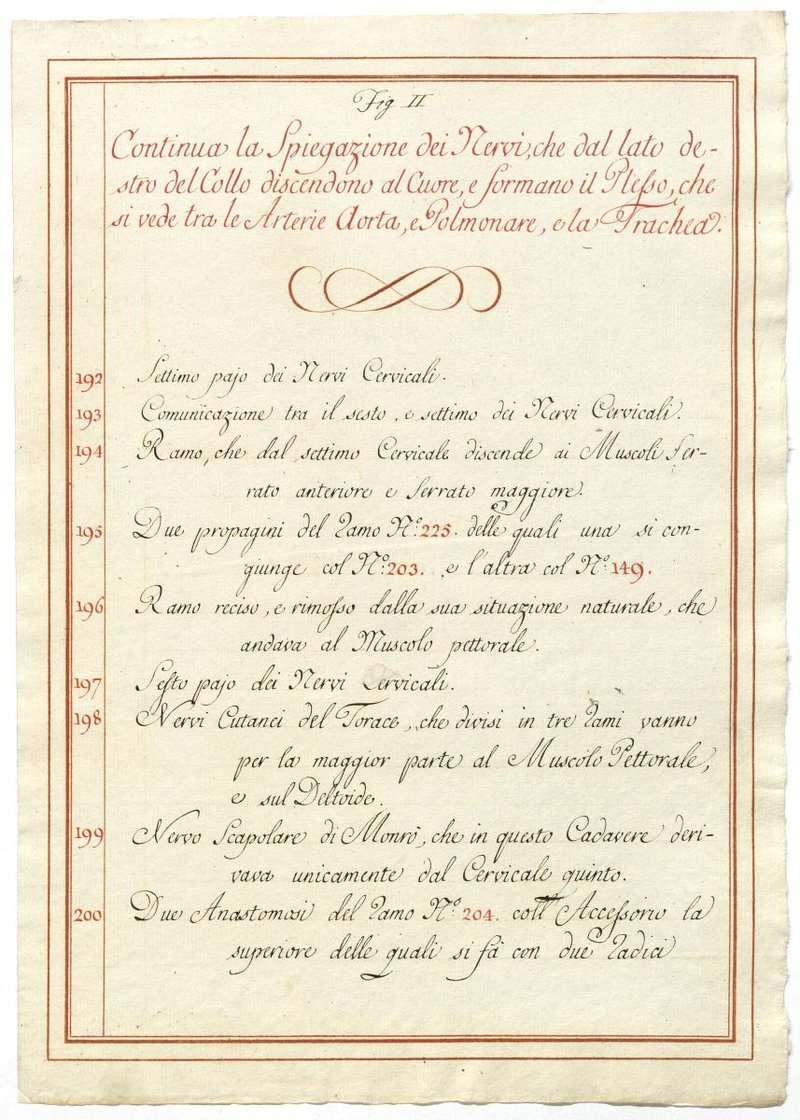 Fig II
Continua la Spiegazione dei Nervi, che dal lato de-
stro del Collo discendono al Cuore, e formano il Plesso, che
si vede tra le Arterie Aorta, e Polmonare, e la Trachea.
192 Settimo pajo dei Nervi Cervicali.
193 Comunicazione tra il sesto, e settimo dei Nervi Cervicali.
194 Ramo, che dal settimo Cervicale discende ai Muscoli Ser-
rato anteriore e serrato maggiore.
195 Due propagini del Ramo N.º 225. delle quali una si con-
giunge col N.º 203. e l'altra col N.º 149.
196 Ramo reciso, e rimosso dalla sua situazione naturale, che
andava al Muscolo pettorale.
197 Sesto pajo dei Nervi Cervicali.
198 Nervi Cutanei del Torace, che divisi in tre Rami vanno
per la maggior parte al Muscolo Pettorale,
e sul Deltoide.
199 Nervo Scapolare di Monrò, che in questo Cadavere deri-
vava unicamente dal Cervicale quinto.
200 Due Anastomosi del Ramo N.º 204. coll'Accessorio la
superiore delle quali si fà con due Radici